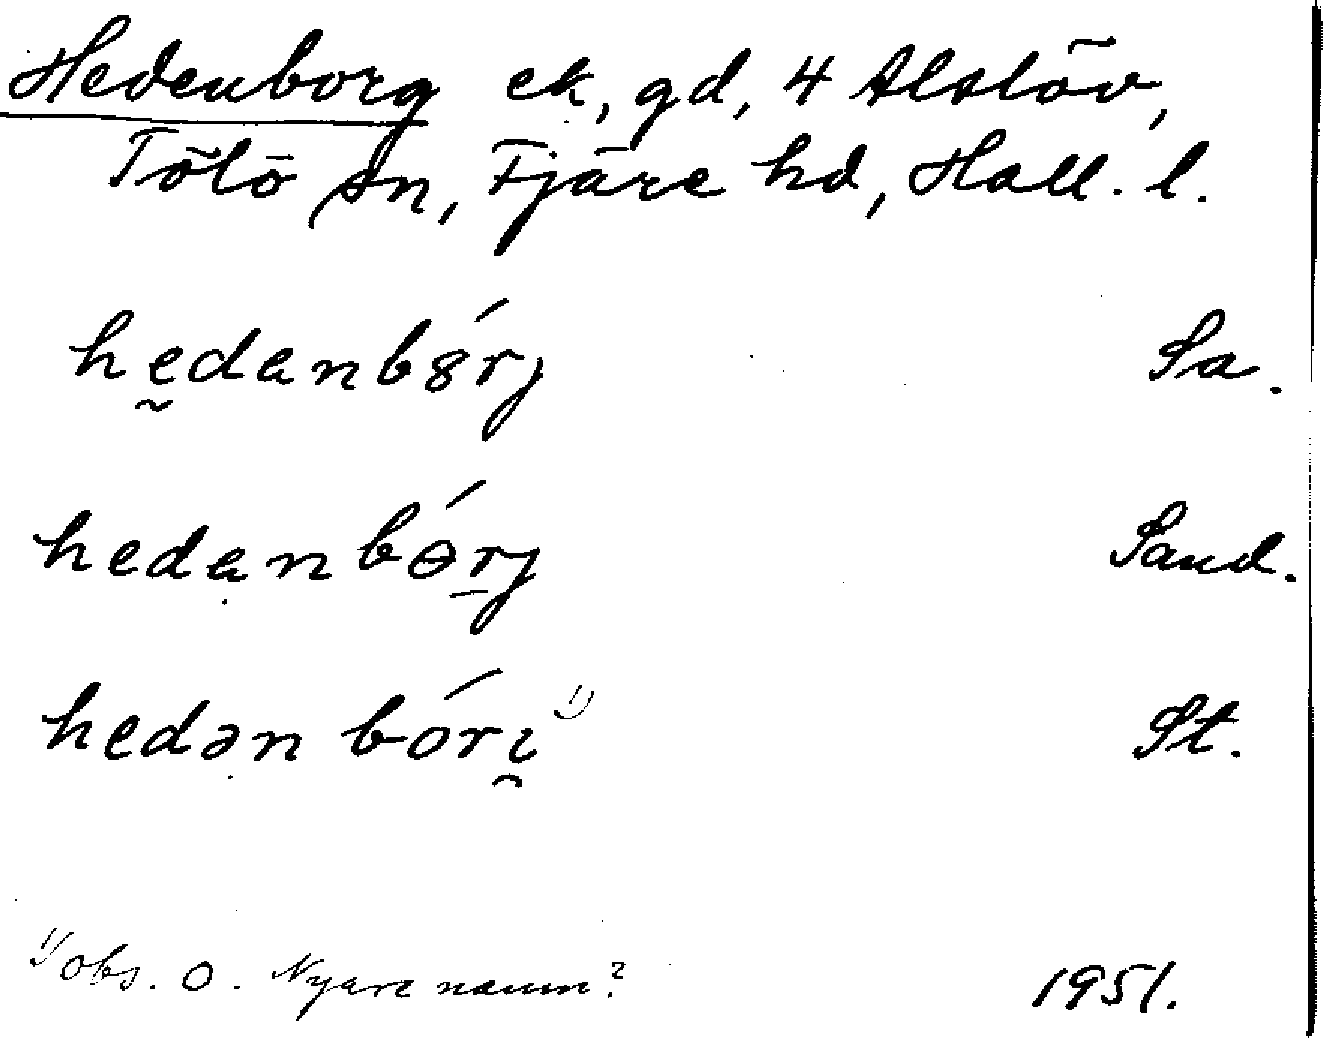 Hedenborg ek, gd, 4 Alslöv,
Tölö sn, Fjäre hd, Hall. l.
hedanbȣ́rj Sa.
hedanbɵ́rj Sand.
hedən bórɩ ¹⁾ St.
¹⁾ obs. o. Nyare namn? 1951.